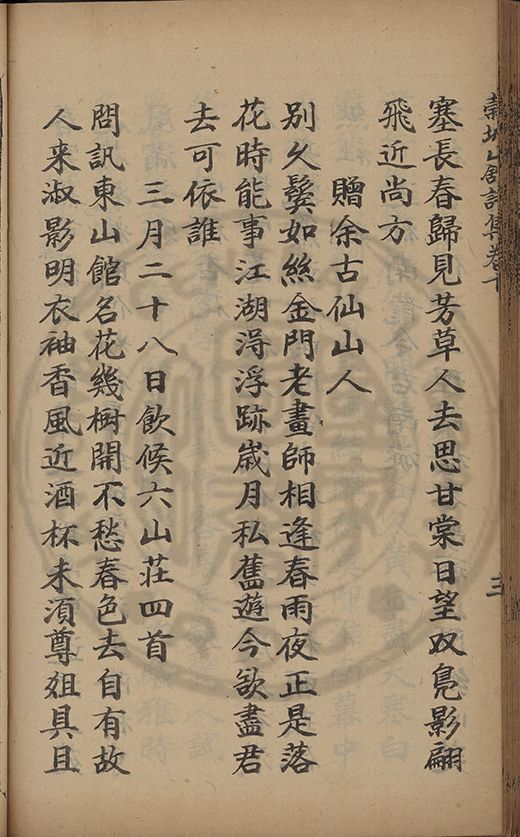 塞長春歸見芳草人去思甘棠日望双鳧影翩
飛近尚方
贈余古仙山人
別久鬓如絲金門老畫師相逢春雨夜正是落
花時能事江湖淂浮跡歲月私舊遊今欲盡君
去可依誰
三月二十八日飲候六山莊四首
問訊東山館名花幾樹開不愁春色去自有故
人来淑影明衣袖香風近酒杯未須尊俎具且